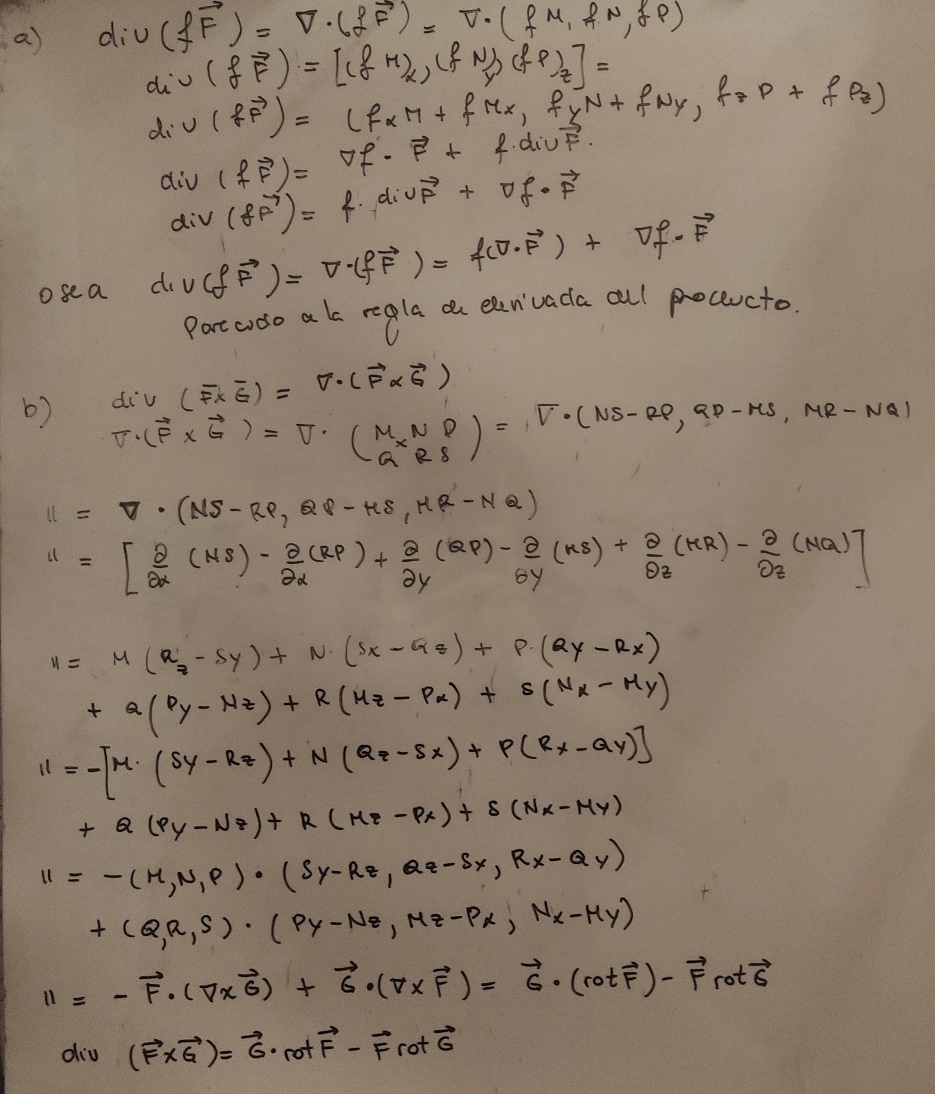 a) div(fF⃗) = ∇·(fF⃗) = ∇·(fM, fN, fP)
div(fF⃗) = [(fM)x, (fN)y, (fP)z] =
div(fF⃗) = (fxM + fMx, fyN + fNy, fzP + fPz)
div(fF⃗) = ∇f·F⃗ + f·divF⃗.
div(fF⃗) = f·divF⃗ + ∇f·F⃗
osea div(fF⃗) = ∇·(fF⃗) = f(∇·F⃗) + ∇f·F⃗
Parecido a la regla de derivada del producto.
b) div(F̄xḠ) = ∇·(F⃗xG⃗)
∇·(F⃗xG⃗) = ∇·(M N P x Q R S) = ∇·(NS-RP, QP-MS, MR-NQ)
〃 = ∇·(NS-RP, QP-MS, MR-NQ)
〃 = [∂/∂x (NS) - ∂/∂x (RP) + ∂/∂y (QP) - ∂/∂y (MS) + ∂/∂z (MR) - ∂/∂z (NQ)]
〃 = M(Rz-Sy) + N·(Sx-Qz) + P·(Qy-Rx)
+ Q(Py-Nz) + R(Mz-Px) + S(Nx-My)
〃 = -[M·(Sy-Rz) + N(Qz-Sx) + P(Rx-Qy)]
+ Q(Py-Nz) + R(Mz-Px) + S(Nx-My)
〃 = -(M,N,P)·(Sy-Rz, Qz-Sx, Rx-Qy)
+ (Q,R,S)·(Py-Nz, Mz-Px, Nx-My)
〃 = -F⃗·(∇xG⃗) + G⃗·(∇xF⃗) = G⃗·(rotF⃗) - F⃗ rotG⃗
div (F⃗xG⃗) = G⃗·rotF⃗ - F⃗ rotG⃗